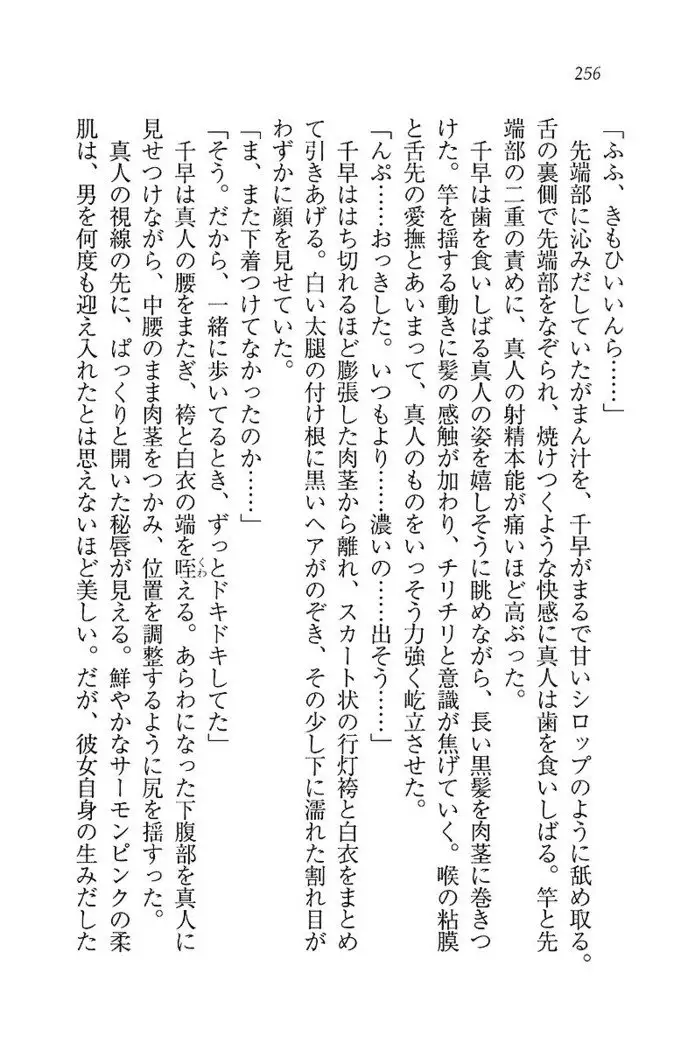 256
「ふふ、きもひいいんら……」
　先端部に沁みだしていたがまん汁を、千早がまるで甘いシロップのように舐め取る。
舌の裏側で先端部をなぞられ、焼けつくような快感に真人は歯を食いしばる。竿と先
端部の二重の責めに、真人の射精本能が痛いほど高ぶった。
　千早は歯を食いしばる真人の姿を嬉しそうに眺めながら、長い黒髪を肉茎に巻きつ
けた。竿を揺する動きに髪の感触が加わり、チリチリと意識が焦げていく。喉の粘膜
と舌先の愛撫とあいまって、真人のものをいっそう力強く屹立させた。
「んぷ……おっきした。いつもより……濃いの……出そう……」
　千早ははち切れるほど膨張した肉茎から離れ、スカート状の行灯袴と白衣をまとめ
て引きあげる。白い太腿の付け根に黒いヘアがのぞき、その少し下に濡れた割れ目が
わずかに顔を見せていた。
「ま、また下着つけてなかったのか……」
「そう。だから、一緒に歩いてるとき、ずっとドキドキしてた」
　千早は真人の腰をまたぎ、袴と白衣の端を咥くわえる。あらわになった下腹部を真人に
見せつけながら、中腰のまま肉茎をつかみ、位置を調整するように尻を揺すった。
　真人の視線の先に、ぱっくりと開いた秘唇が見える。鮮やかなサーモンピンクの柔
肌は、男を何度も迎え入れたとは思えないほど美しい。だが、彼女自身の生みだした